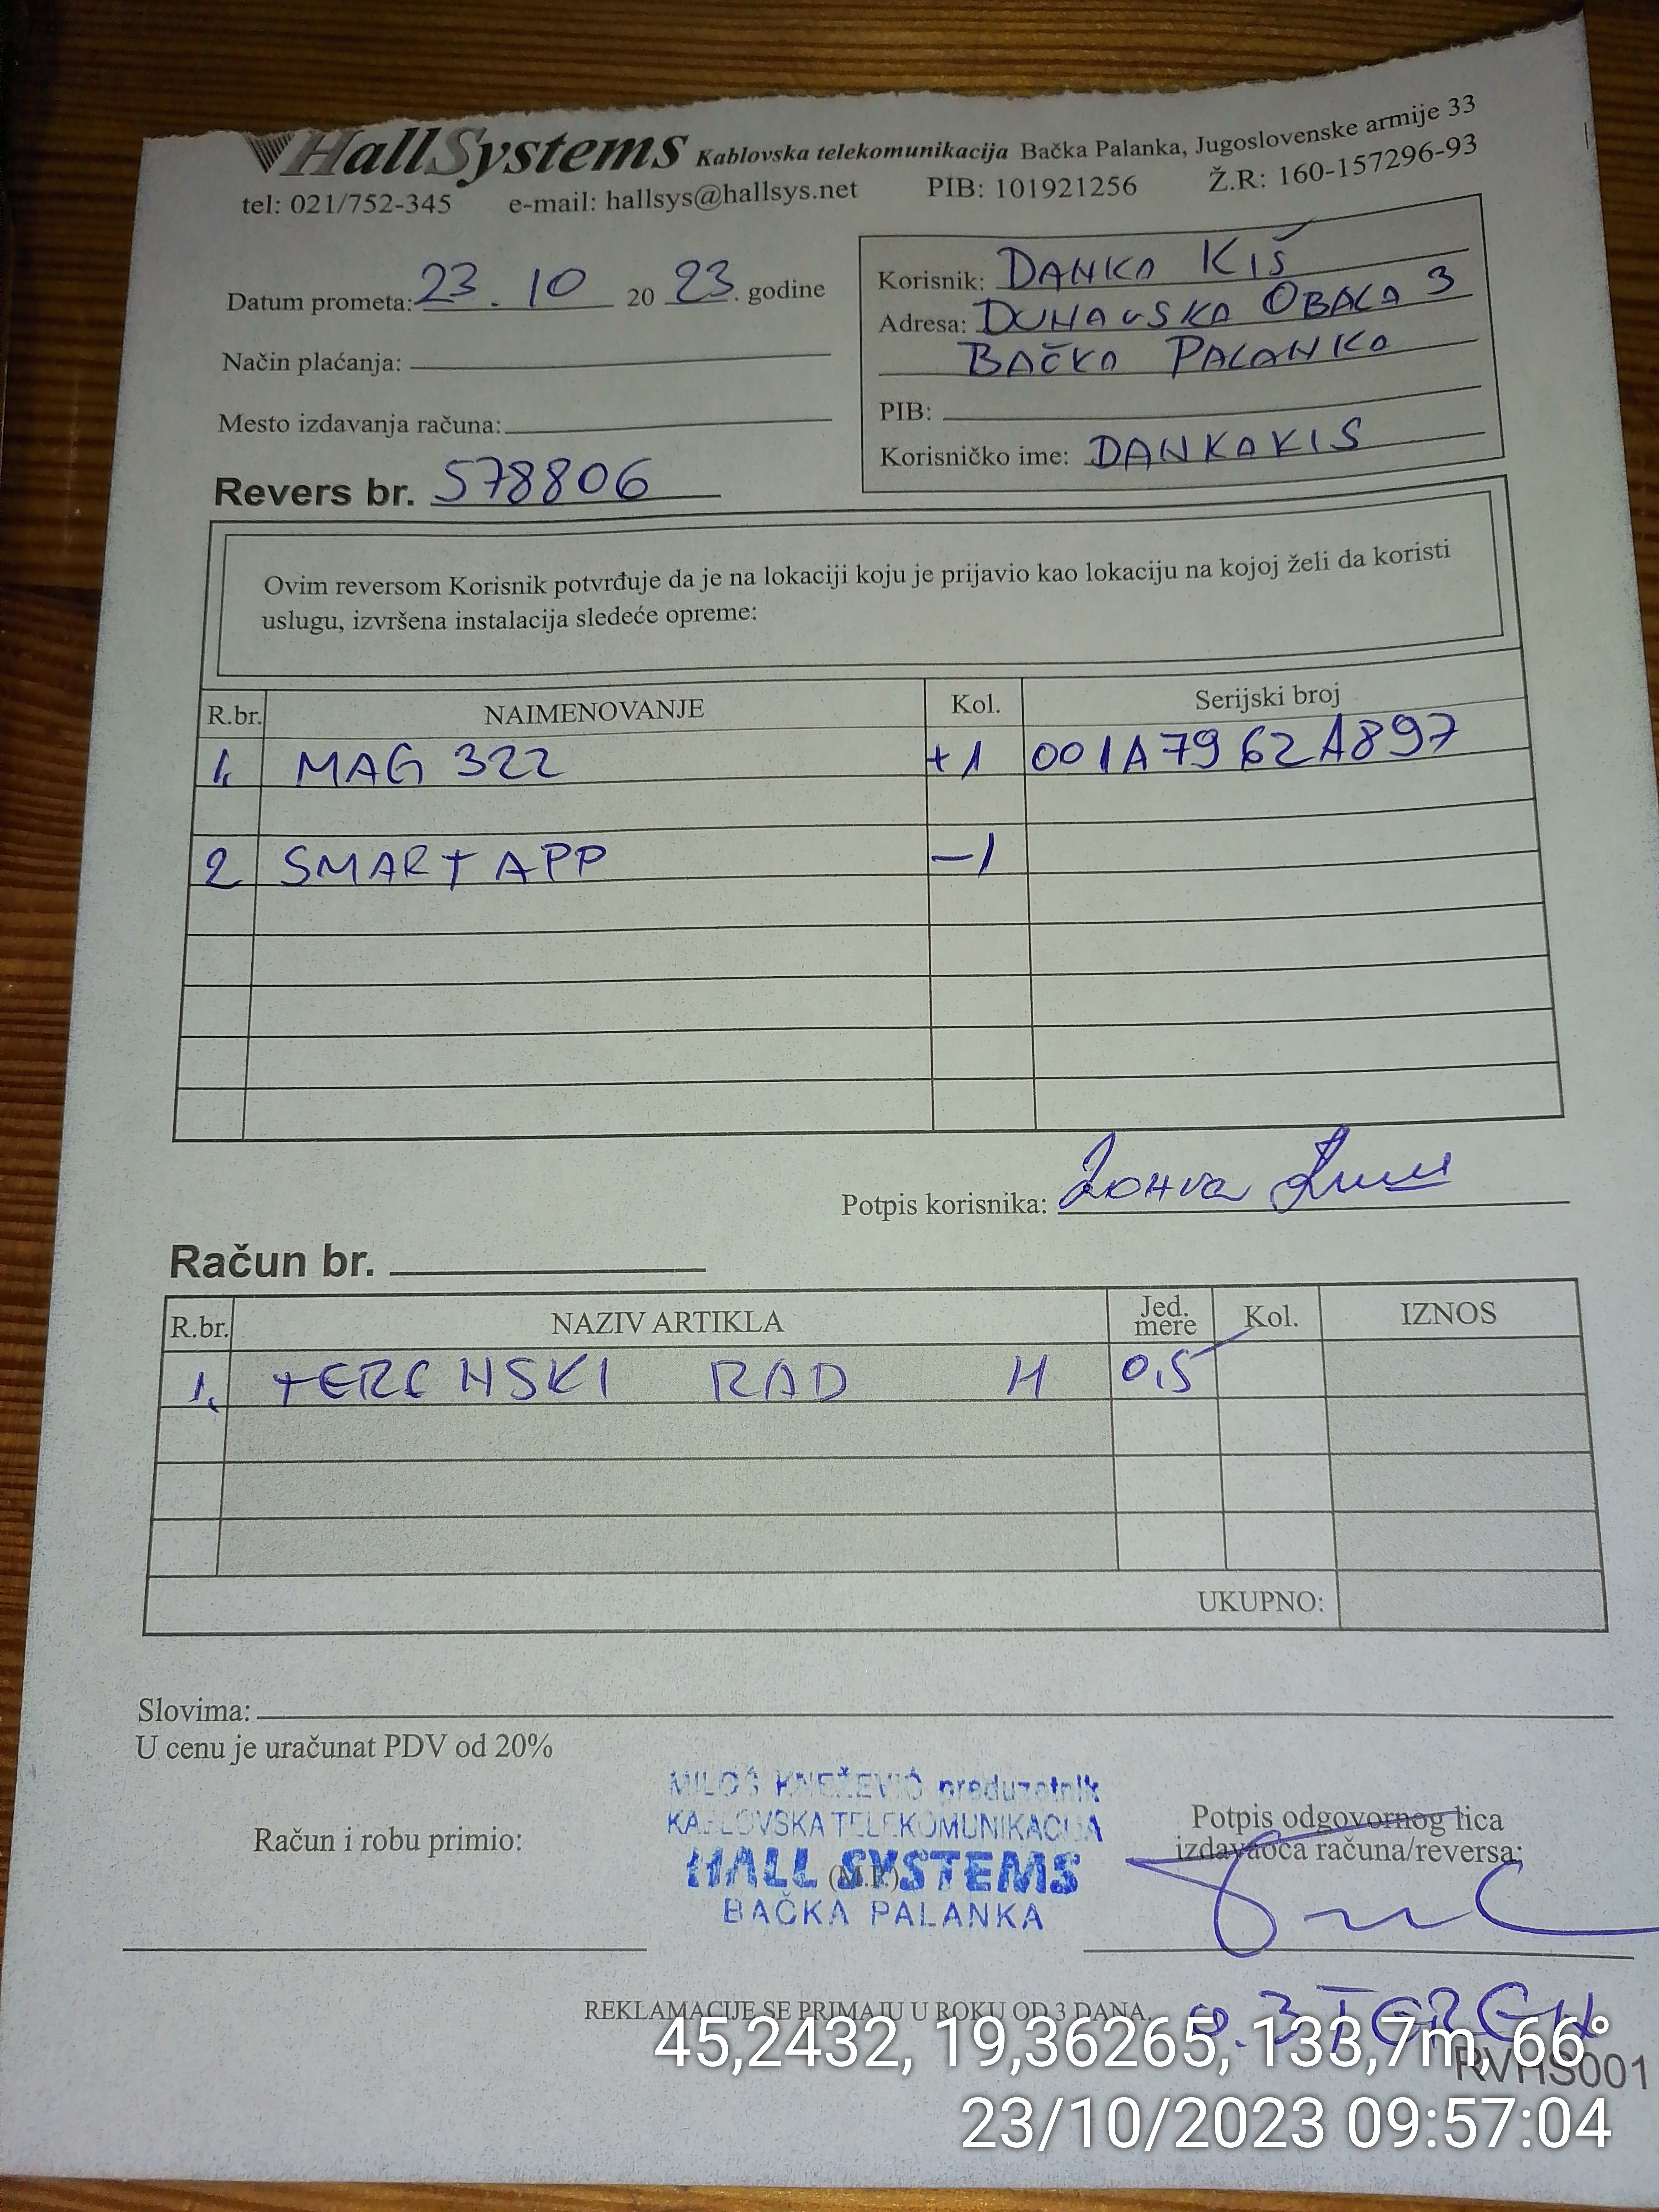 HallSystems Kablovska telekomunikacija Bačka Palanka, Jugoslovenske armije 33
tel: 021/752-345 e-mail: hallsys@hallsys.net PIB: 101921256 Ž.R: 160-157296-93
Datum prometa: 23. 10 20 23. godine
Način plaćanja:
Mesto izdavanja računa:
Korisnik: DANKA KIŠ
Adresa: DUNAVSKA OBALA 3
BAČKA PALANKA
PIB:
Korisničko ime: DANKAKIS
Revers br. 578806
Ovim reversom Korisnik potvrđuje da je na lokaciji koju je prijavio kao lokaciju na kojoj želi da koristi
uslugu, izvršena instalacija sledeće opreme:
R.br. NAIMENOVANJE Kol. Serijski broj
1. MAG 322 +1 001A7962A897
2 SMART APP -1
Potpis korisnika:
Račun br.
R.br. NAZIV ARTIKLA Jed. mere Kol. IZNOS
1. TERENSKI RAD H 0,5
UKUPNO:
Slovima:
U cenu je uračunat PDV od 20%
MILOŠ KNEŽEVIĆ preduzetnik
KABLOVSKA TELEKOMUNIKACIJA
HALL SYSTEMS
BAČKA PALANKA
Račun i robu primio:
(M.P.)
Potpis odgovornog lica
izdavaoca računa/reversa:
REKLAMACIJE SE PRIMAJU U ROKU OD 3 DANA.
45,2432, 19,36265, 133,7m, 66°
RVHS001
23/10/2023 09:57:04